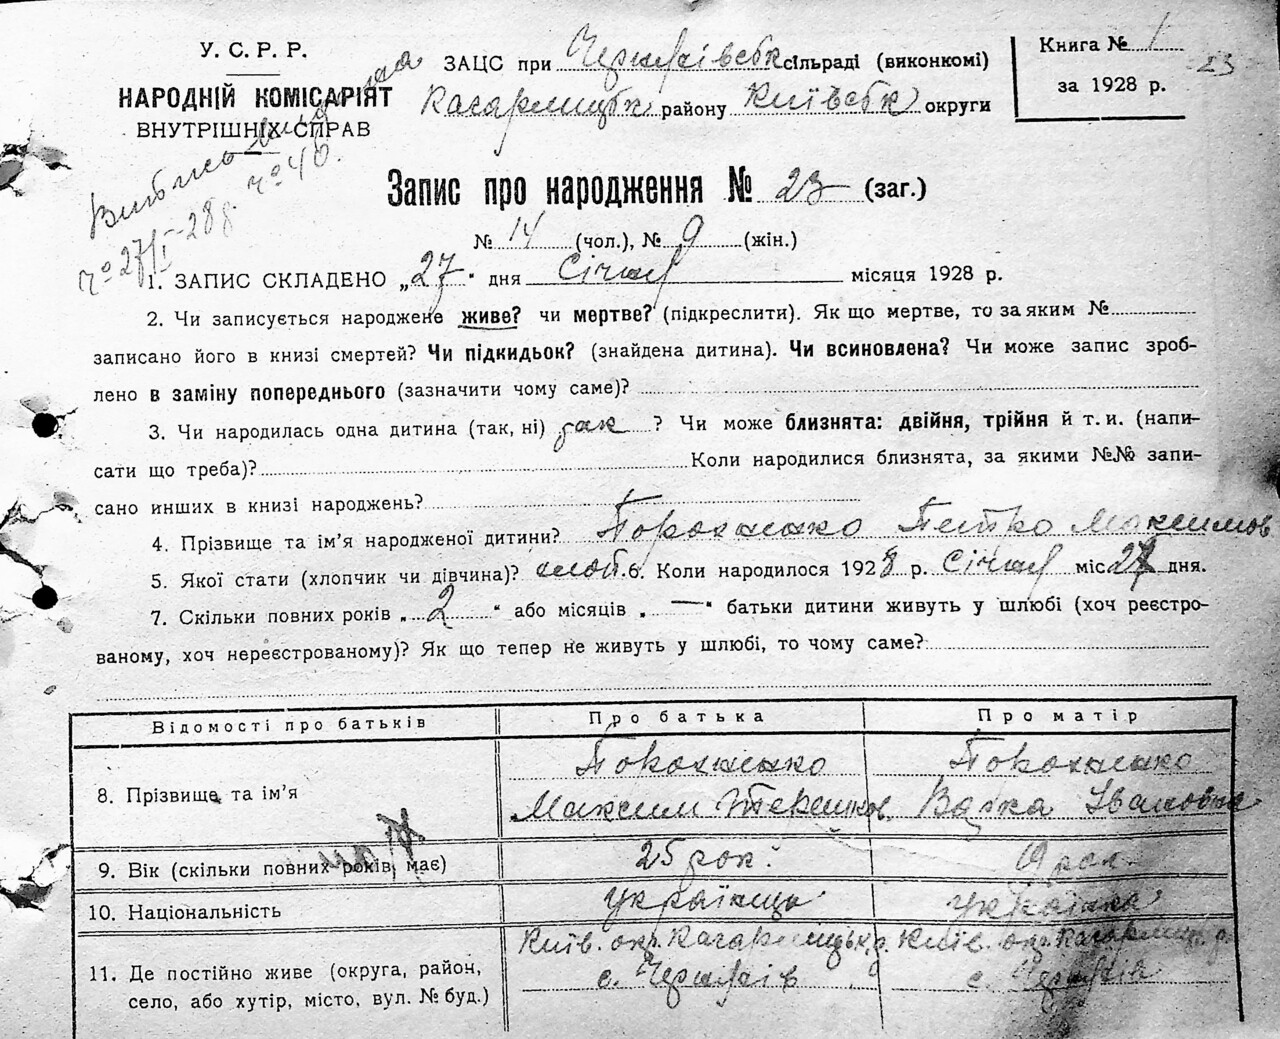 У. С. Р. Р.
НАРОДНІЙ КОМІСАРІЯТ
ВНУТРІШНІХ СПРАВ
ЗАЦС при сільраді (виконкомі)
Кагарлицьк району Київськ округи
Книга № 1
за 1928 р.
23
Запис про народження № 23 (заг.)
№ 14 (чол.), № 9 (жін.)
1. ЗАПИС СКЛАДЕНО „27“ дня Січня місяця 1928 р.
2. Чи записується народжене живе? чи мертве? (підкреслити). Як що мертве, то за яким №
записано його в книзі смертей? Чи підкидьок? (знайдена дитина). Чи всиновлена? Чи може запис зроб-
лено в заміну попереднього (зазначити чому саме)?
3. Чи народилась одна дитина (так, ні) так ? Чи може близнята: двійня, трійня й т. и. (напи-
сати що треба)? Коли народилися близнята, за якими №№ запи-
сано инших в книзі народжень?
4. Прізвище та ім’я народженої дитини? Порохненко Петро Максимов
5. Якої стати (хлопчик чи дівчина)? хлоп. 6. Коли народилося 1928 р. Січня міс 27 дня.
7. Скільки повних років „2“ або місяців „—“ батьки дитини живуть у шлюбі (хоч реєстро-
ваному, хоч нереєстрованому)? Як що тепер не живуть у шлюбі, то чому саме?
Відомості про батьків Про батька Про матір
8. Прізвище та ім’я Порохненко Порохненко
Максим Терешков. Івановна
9. Вік (скільки повних років має) 25 рок.
10. Національність Українець Українка
11. Де постійно живе (округа, район,
село, або хутір, місто, вул. № буд.)
Київ. окр. Кагарлицьк. р. Київ. окр. Кагарлиц. р.